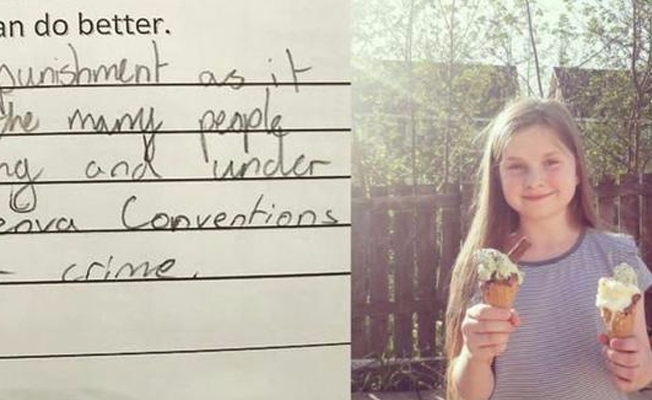 an do better.
punishment as it
the many people
ng and under
enova Conventions
crime.